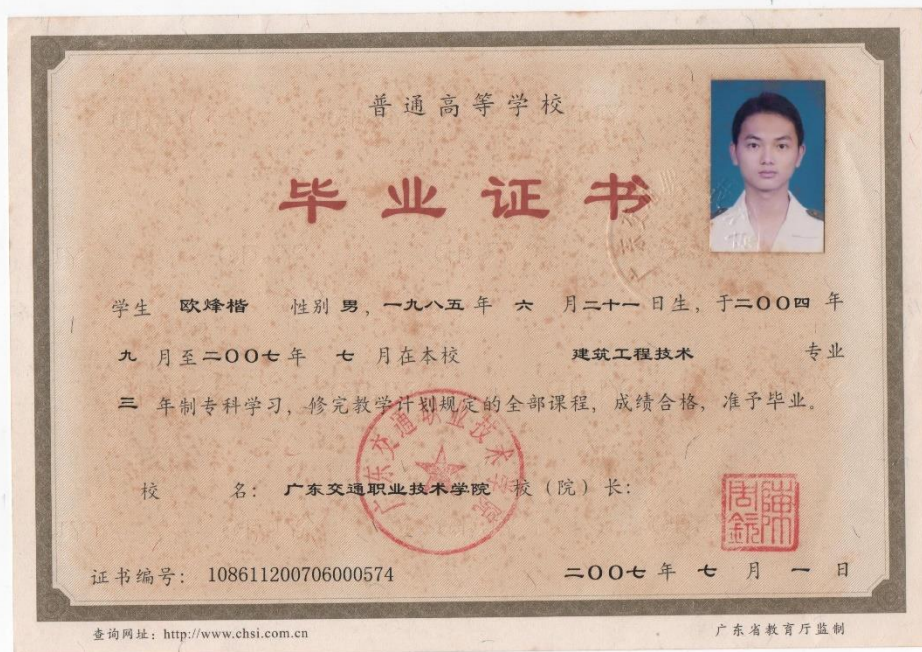 普通高等学校
毕业证书
学生 欧烽楷 性别 男，一九八五 年 六 月二十一日生，于二〇〇四 年
九 月至二〇〇七年 七 月在本校 建筑工程技术 专业
三 年制专科学习，修完教学计划规定的全部课程，成绩合格，准予毕业。
广东交通职业技术学院
校 名：广东交通职业技术学院 校（院）长：
证书编号：108611200706000574 二〇〇七 年 七 月 一 日
查询网址：http://www.chsi.com.cn 广东省教育厅监制